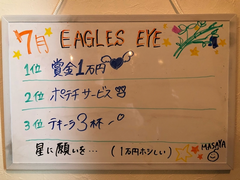 7月 EAGLES EYE
1位 賞金1万円
2位 ポテチサービス
3位 テキーラ3杯
星に願いを… (1万円ホシい)
MASAYA